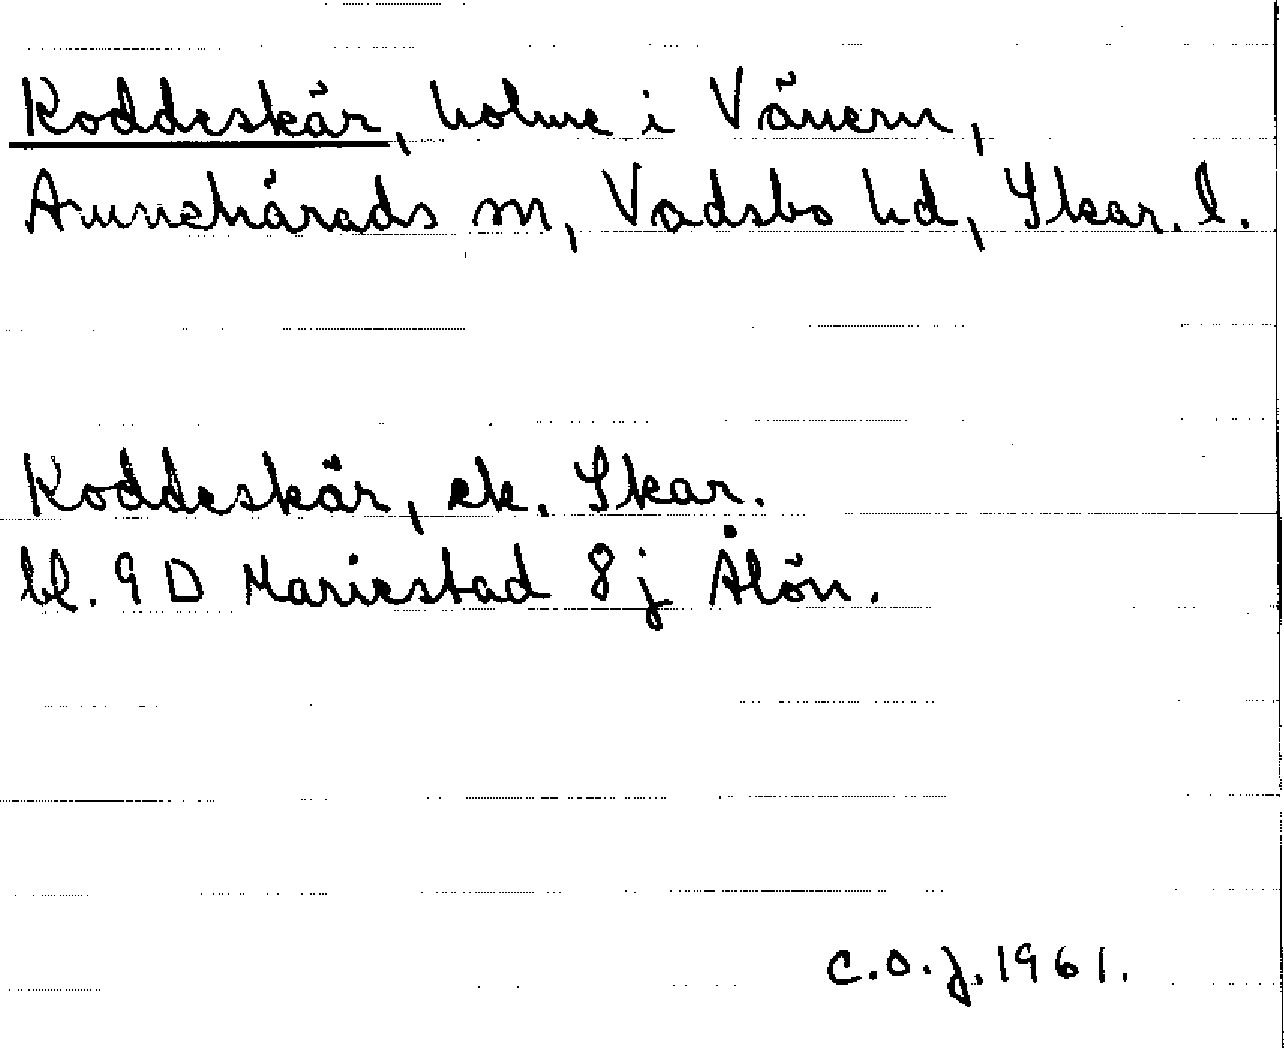 Koddeskär, holme i Vänern,
Amnehärads sn, Vadsbo hd, Skar. l.
Koddeskär, ek. Skar.
bl. 9 D Mariestad 8 j Ålön.
C.O.J. 1961.